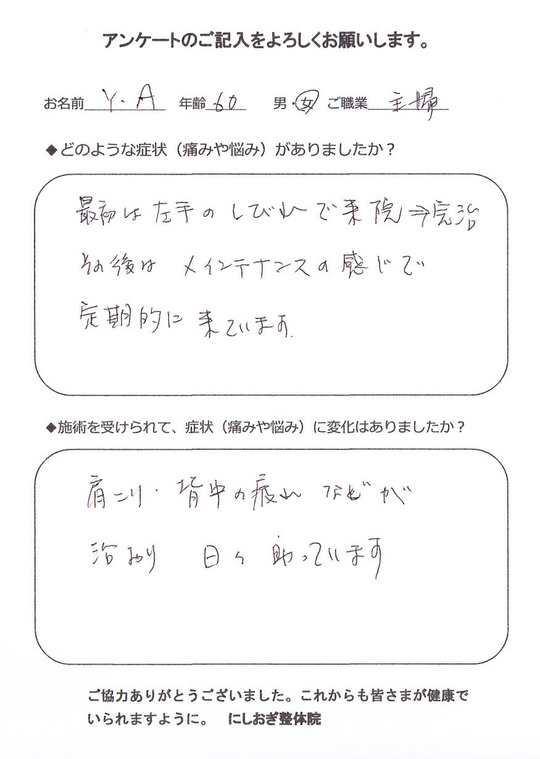 アンケートのご記入をよろしくお願いします。
お名前 Y.A 年齢 60 男・女 ご職業 主婦
◆どのような症状（痛みや悩み）がありましたか？
最初は左手のしびれで来院⇒完治
その後は メインテナンスの感じで
定期的に 来ています。
◆施術を受けられて、症状（痛みや悩み）に変化はありましたか？
肩こり・背中の疲れ などが
治おり 日々 助っています
ご協力ありがとうございました。これからも皆さまが健康で
いられますように。 にしおぎ整体院